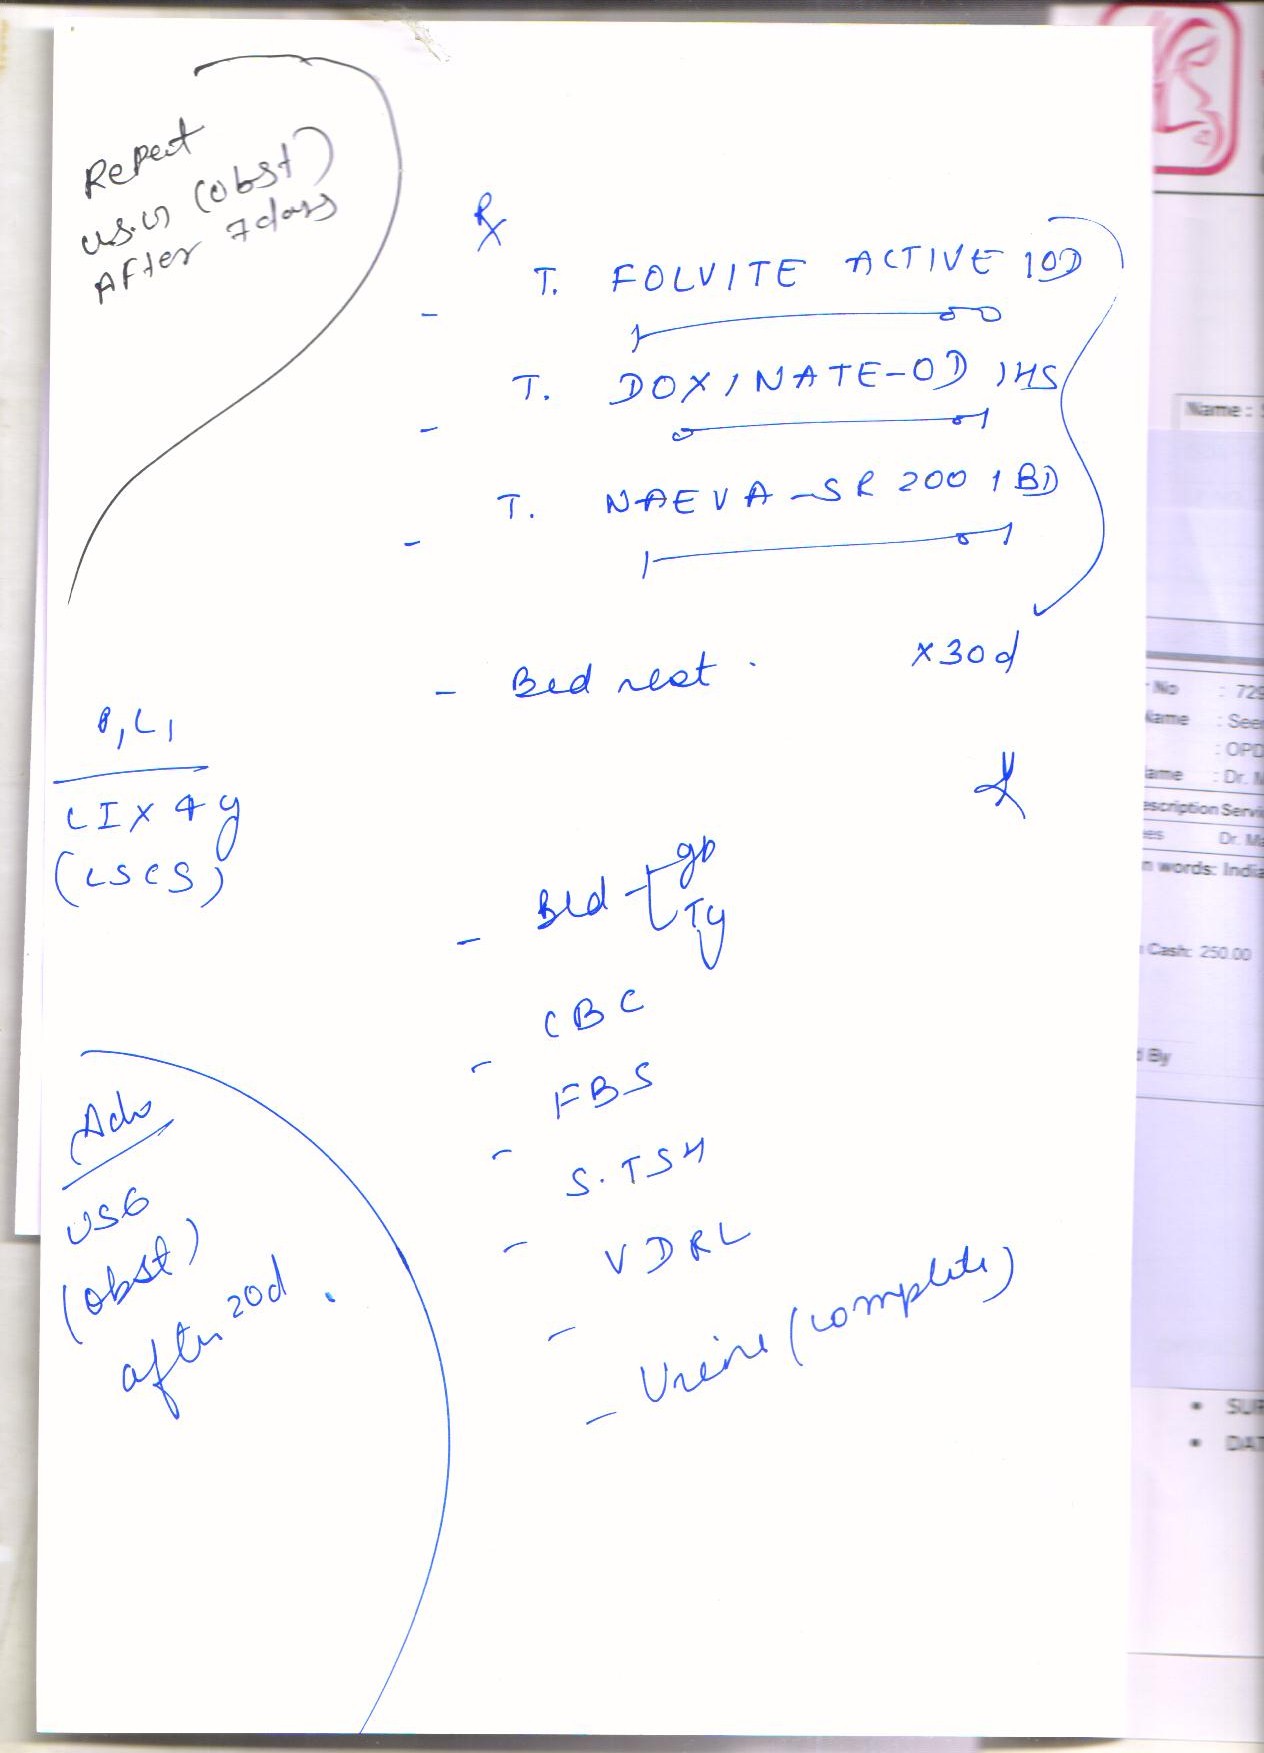 Repeat
U.S.G (Obst)
After 7 days
Rx
- T. FOLVITE ACTIVE 1OD
1——00
- T. DOXINATE-OD 1HS
0——01
- T. NAEVA-SR 200 1 BD
1——01
- Bed rest. x30d
P1L1
LIX4y
(LSCS)
- Bld gp
Ty
- CBC
- FBS
- S. TSH
- VDRL
- Urine (complete)
Adv
USG
(obst)
after 20d.
Name :
No : 729
Name : See
: OPD
ame : Dr. M
escription Servi
es Dr. Ma
n words: India
Cash: 250.00
d By
• SUR
• DAT